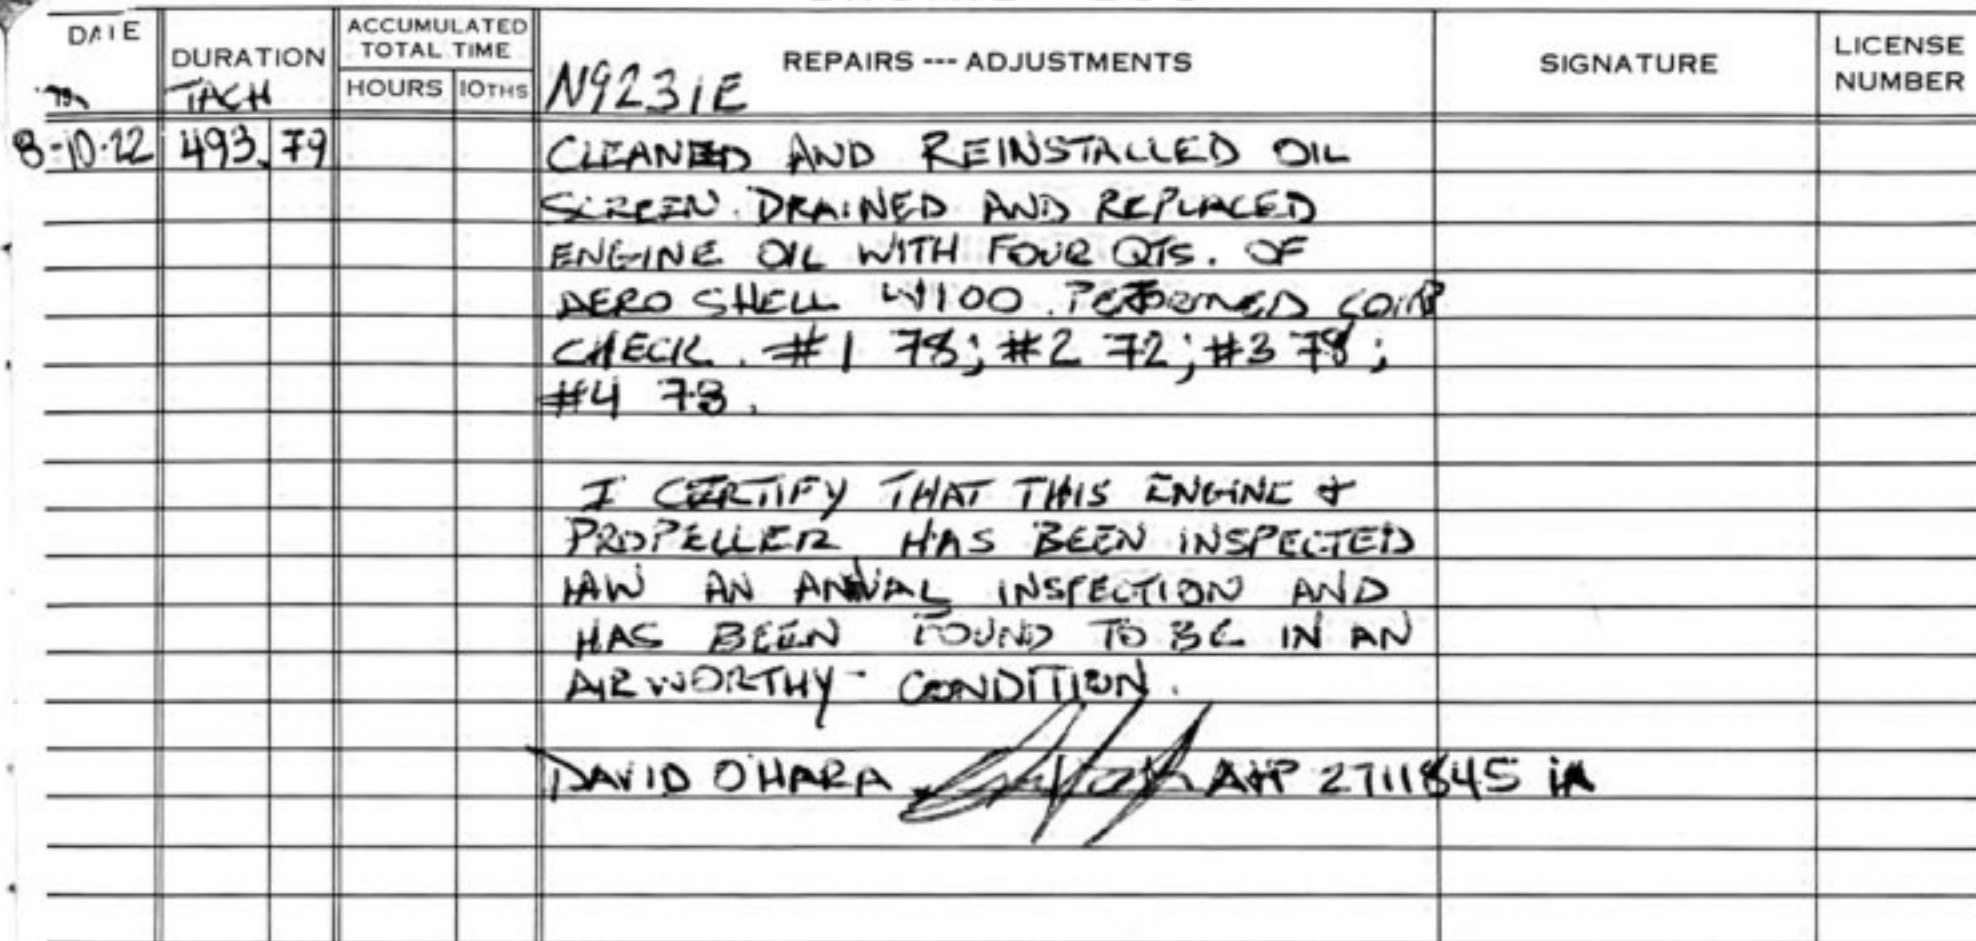 DATE
DURATION
TACH
ACCUMULATED
TOTAL TIME
HOURS 10THS
N9231E
REPAIRS --- ADJUSTMENTS
SIGNATURE
LICENSE
NUMBER
8-10-22 493.79 CLEANED AND REINSTALLED OIL
SCREEN. DRAINED AND REPLACED
ENGINE OIL WITH FOUR QTS. OF
AERO SHELL W100. PERFORMED COMP
CHECK. #1 78; #2 72; #3 78;
#4 73.
I CERTIFY THAT THIS ENGINE &
PROPELLER HAS BEEN INSPECTED
IAW AN ANNUAL INSPECTION AND
HAS BEEN FOUND TO BE IN AN
AIRWORTHY CONDITION.
DAVID O'HARA A+P 2711845 IA